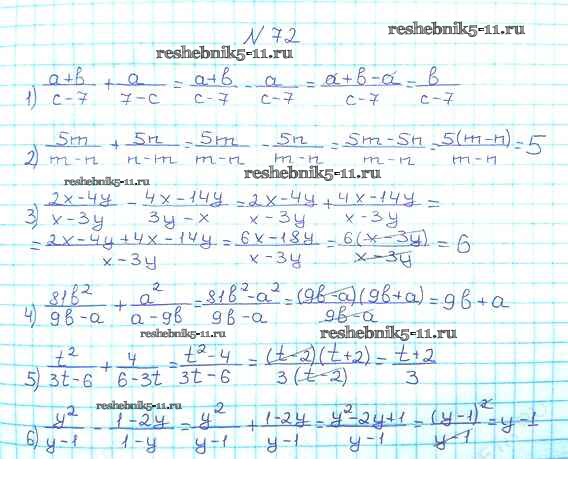 N 72
reshebnik5-11.ru
reshebnik5-11.ru
1) (a+b)/(c-7) + a/(7-c) = (a+b)/(c-7) - a/(c-7) = (a+b-a)/(c-7) = b/(c-7)
2) 5m/(m-n) + 5n/(n-m) = 5m/(m-n) - 5n/(m-n) = (5m-5n)/(m-n) = 5(m-n)/(m-n) = 5
reshebnik5-11.ru
reshebnik5-11.ru
3) (2x-4y)/(x-3y) - (4x-14y)/(3y-x) = (2x-4y)/(x-3y) + (4x-14y)/(x-3y) =
= (2x-4y+4x-14y)/(x-3y) = (6x-18y)/(x-3y) = 6(x-3y)/(x-3y) = 6
4) 81b²/(9b-a) + a²/(a-9b) = (81b²-a²)/(9b-a) = (9b-a)(9b+a)/(9b-a) = 9b+a
reshebnik5-11.ru
reshebnik5-11.ru
5) t²/(3t-6) + 4/(6-3t) = (t²-4)/(3t-6) = (t-2)(t+2)/3(t-2) = (t+2)/3
reshebnik5-11.ru
6) y²/(y-1) - (1-2y)/(1-y) = y²/(y-1) + (1-2y)/(y-1) = (y²-2y+1)/(y-1) = (y-1)²/(y-1) = y-1